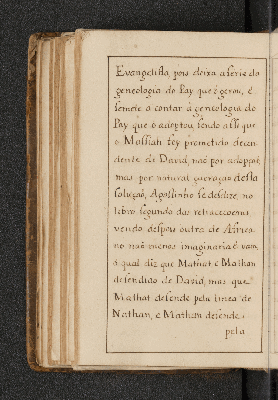 Evangelista, pois deixa a serie da
geneologia do Pay que o gerou, e
se mete a contar a geneologia do
Pay que o adoptou, sendo assi que
o Massiah foy prometido decen
dente de David, naõ por adopçaõ,
mas por natural geraçaõ desta
soluçaõ, Agostinho se desdize, no
libro segundo das retractaçoens
vendo despois outra de Africa
no naõ menos imaginaria e vam,
o qual diz que Mathat e Mathan
desendiaõ de David, mas que
Mathat desende pela linea de
Nathan, e Mathan desende
pela